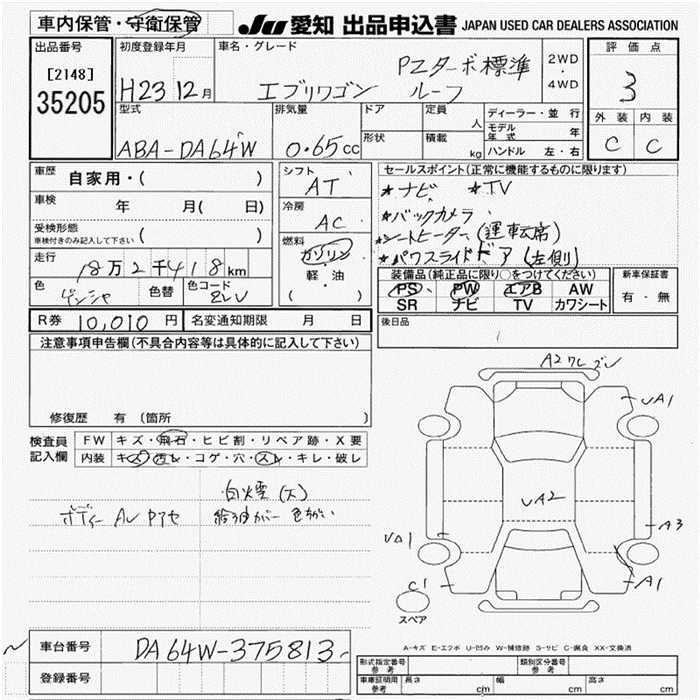 車内保管・守衛保管
JU 愛知 出品申込書 JAPAN USED CAR DEALERS ASSOCIATION
出品番号 [2148] 35205
初度登録年月 H23 12月
車名・グレード エブリワゴン PZターボ標準ルーフ
2WD・4WD
評価点 3
外装 内装
C C
型式 ABA-DA64W
排気量 0.65cc
ドア 形状
定員 人
積載 kg
ディーラー・並行
モデル年式 年
ハンドル 左・右
車歴 自家用・( )
車検 年 月( 日)
受検形態 車検付きのみ記入して下さい ( )
走行 18万2千418km
色 ゲンシャ 色替 色コード ZLV
シフト AT
冷房 AC
燃料 ガソリン・軽・油 ( )
セールスポイント(正常に機能するものに限ります)
*ナビ *TV
*バックカメラ
*シートヒーター(運転席)
*パワスライドドア(左側)
装備品(純正品に限り○をつけてください)
PS PW エアB AW
SR ナビ TV カワシート
新車保証書 有・無
R券 10,010円 名変通知期限 月 日
後日品
注意事項申告欄(不具合内容等は具体的に記入して下さい)
修復歴 有(箇所
検査員記入欄
FW キズ・飛石・ヒビ割・リペア跡・X要
内装 キズ・汚レ・コゲ・穴・スレ・キレ・破レ
白煙(大)
ボディー AU Pアセ
給油カバー色ちがい
A2ワレズレ
UA1
UA2
A3
UA1
C1
A1
スペア
A-キズ E-エクボ U-凹み W-補修跡 S-サビ C-腐食 XX-交換済
車台番号 DA64W-375813
登録番号
形式指定番号 参考
類別区分番号 参考
車庫証明用 参考 長さ cm 幅 cm 高さ cm